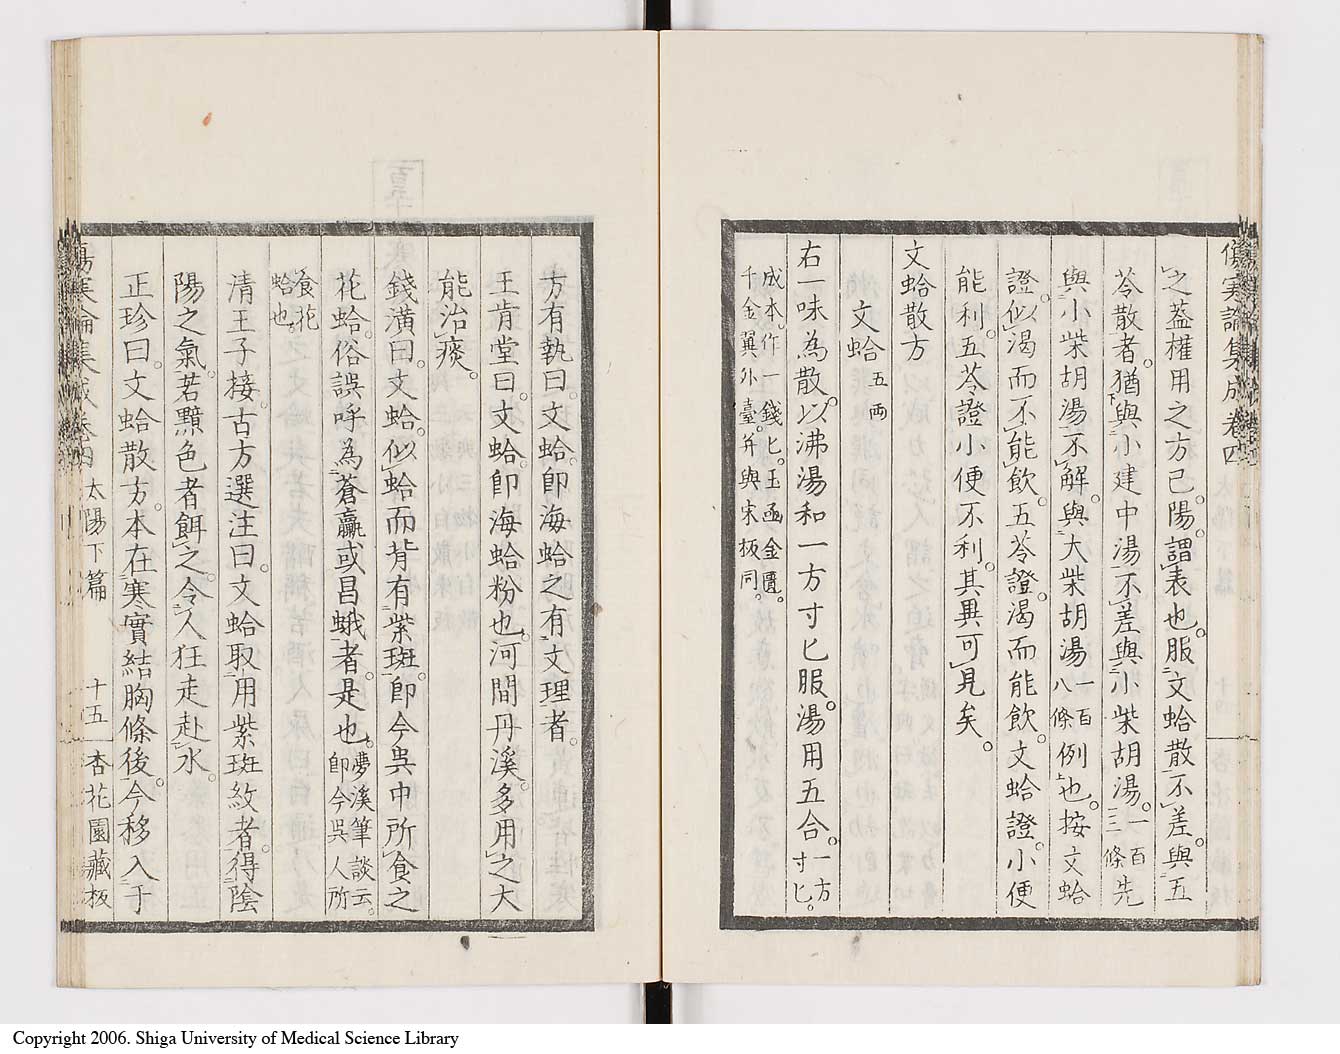 傷寒論集成卷四
之蓋權用之方已。陽。謂表也。服文蛤散不差。與五
苓散者。猶與小建中湯不差與小柴胡湯。一百三條先
與小柴胡湯不解。與大柴胡湯一百八條例也。按文蛤
證。似渴而不能飲。五苓證。渴而能飲。文蛤證。小便
能利。五苓證小便不利。其異可見矣。
文蛤散方
文蛤五兩
右一味為散。以沸湯和一方寸匕服。湯用五合。一方寸匕。
成本。作一錢匕。玉函金匱。
千金翼外臺。并與宋板同。
方有執曰。文蛤。卽海蛤之有文理者。
王肯堂曰。文蛤。卽海蛤粉也。河間丹溪。多用之大
能治痰。
錢潢曰。文蛤。似蛤而背有紫斑。卽今吳中所食之
花蛤。俗誤呼為蒼蠃或昌蛾者。是也。夢溪筆談云。卽今吳人所
食花
蛤也。
清王子接。古方選注曰。文蛤取用紫斑紋者。得陰
陽之氣。若黯色者餌之。令人狂走赴水。
正珍曰。文蛤散方。本在寒實結胸條後。今移入于
傷寒論集成卷四 太陽下篇 十五 杏花園藏板
Copyright 2006. Shiga University of Medical Science Library